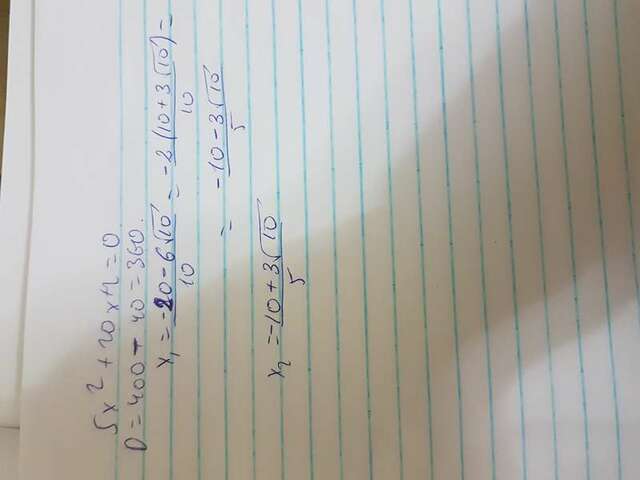 5x² + 20x + 2 = 0
D = 400 - 40 = 360.
x₁ = (-20 - 6√10)/10 = (-2(10 + 3√10))/10 =
= (-10 - 3√10)/5
x₂ = (-10 + 3√10)/5